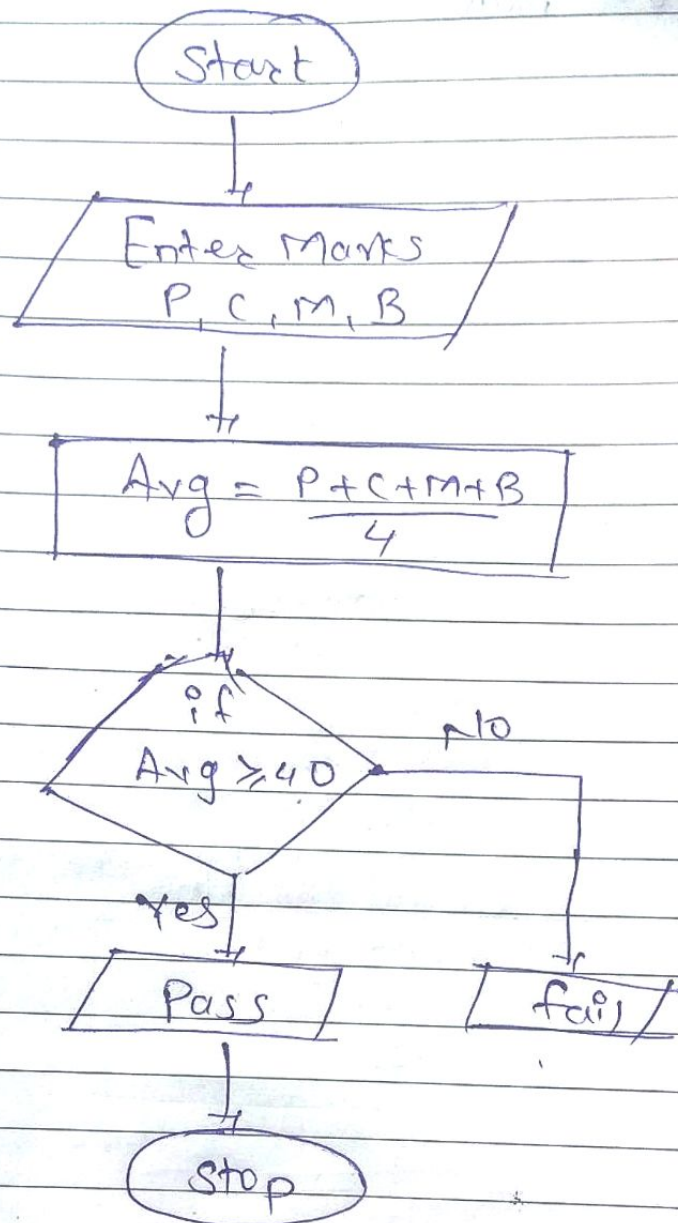 Start
Enter Marks
P, C, M, B
Avg = P+C+M+B
4
if
Avg ≥ 40
No
Yes
Pass
fail
Stop